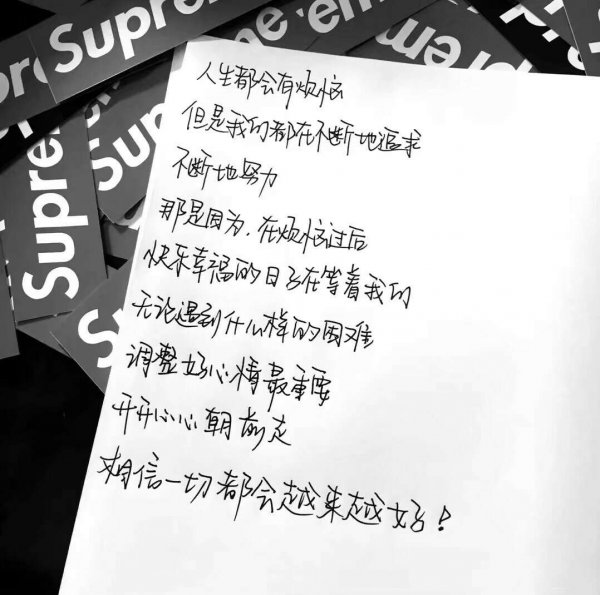 Supreme
人生都会有烦恼
但是我们都在不断地追求
不断地努力
那是因为,在烦恼过后
快乐幸福的日子在等着我们
无论遇到什么样的困难
调整好心情最重要
开开心心朝前走
相信一切都会越来越好!